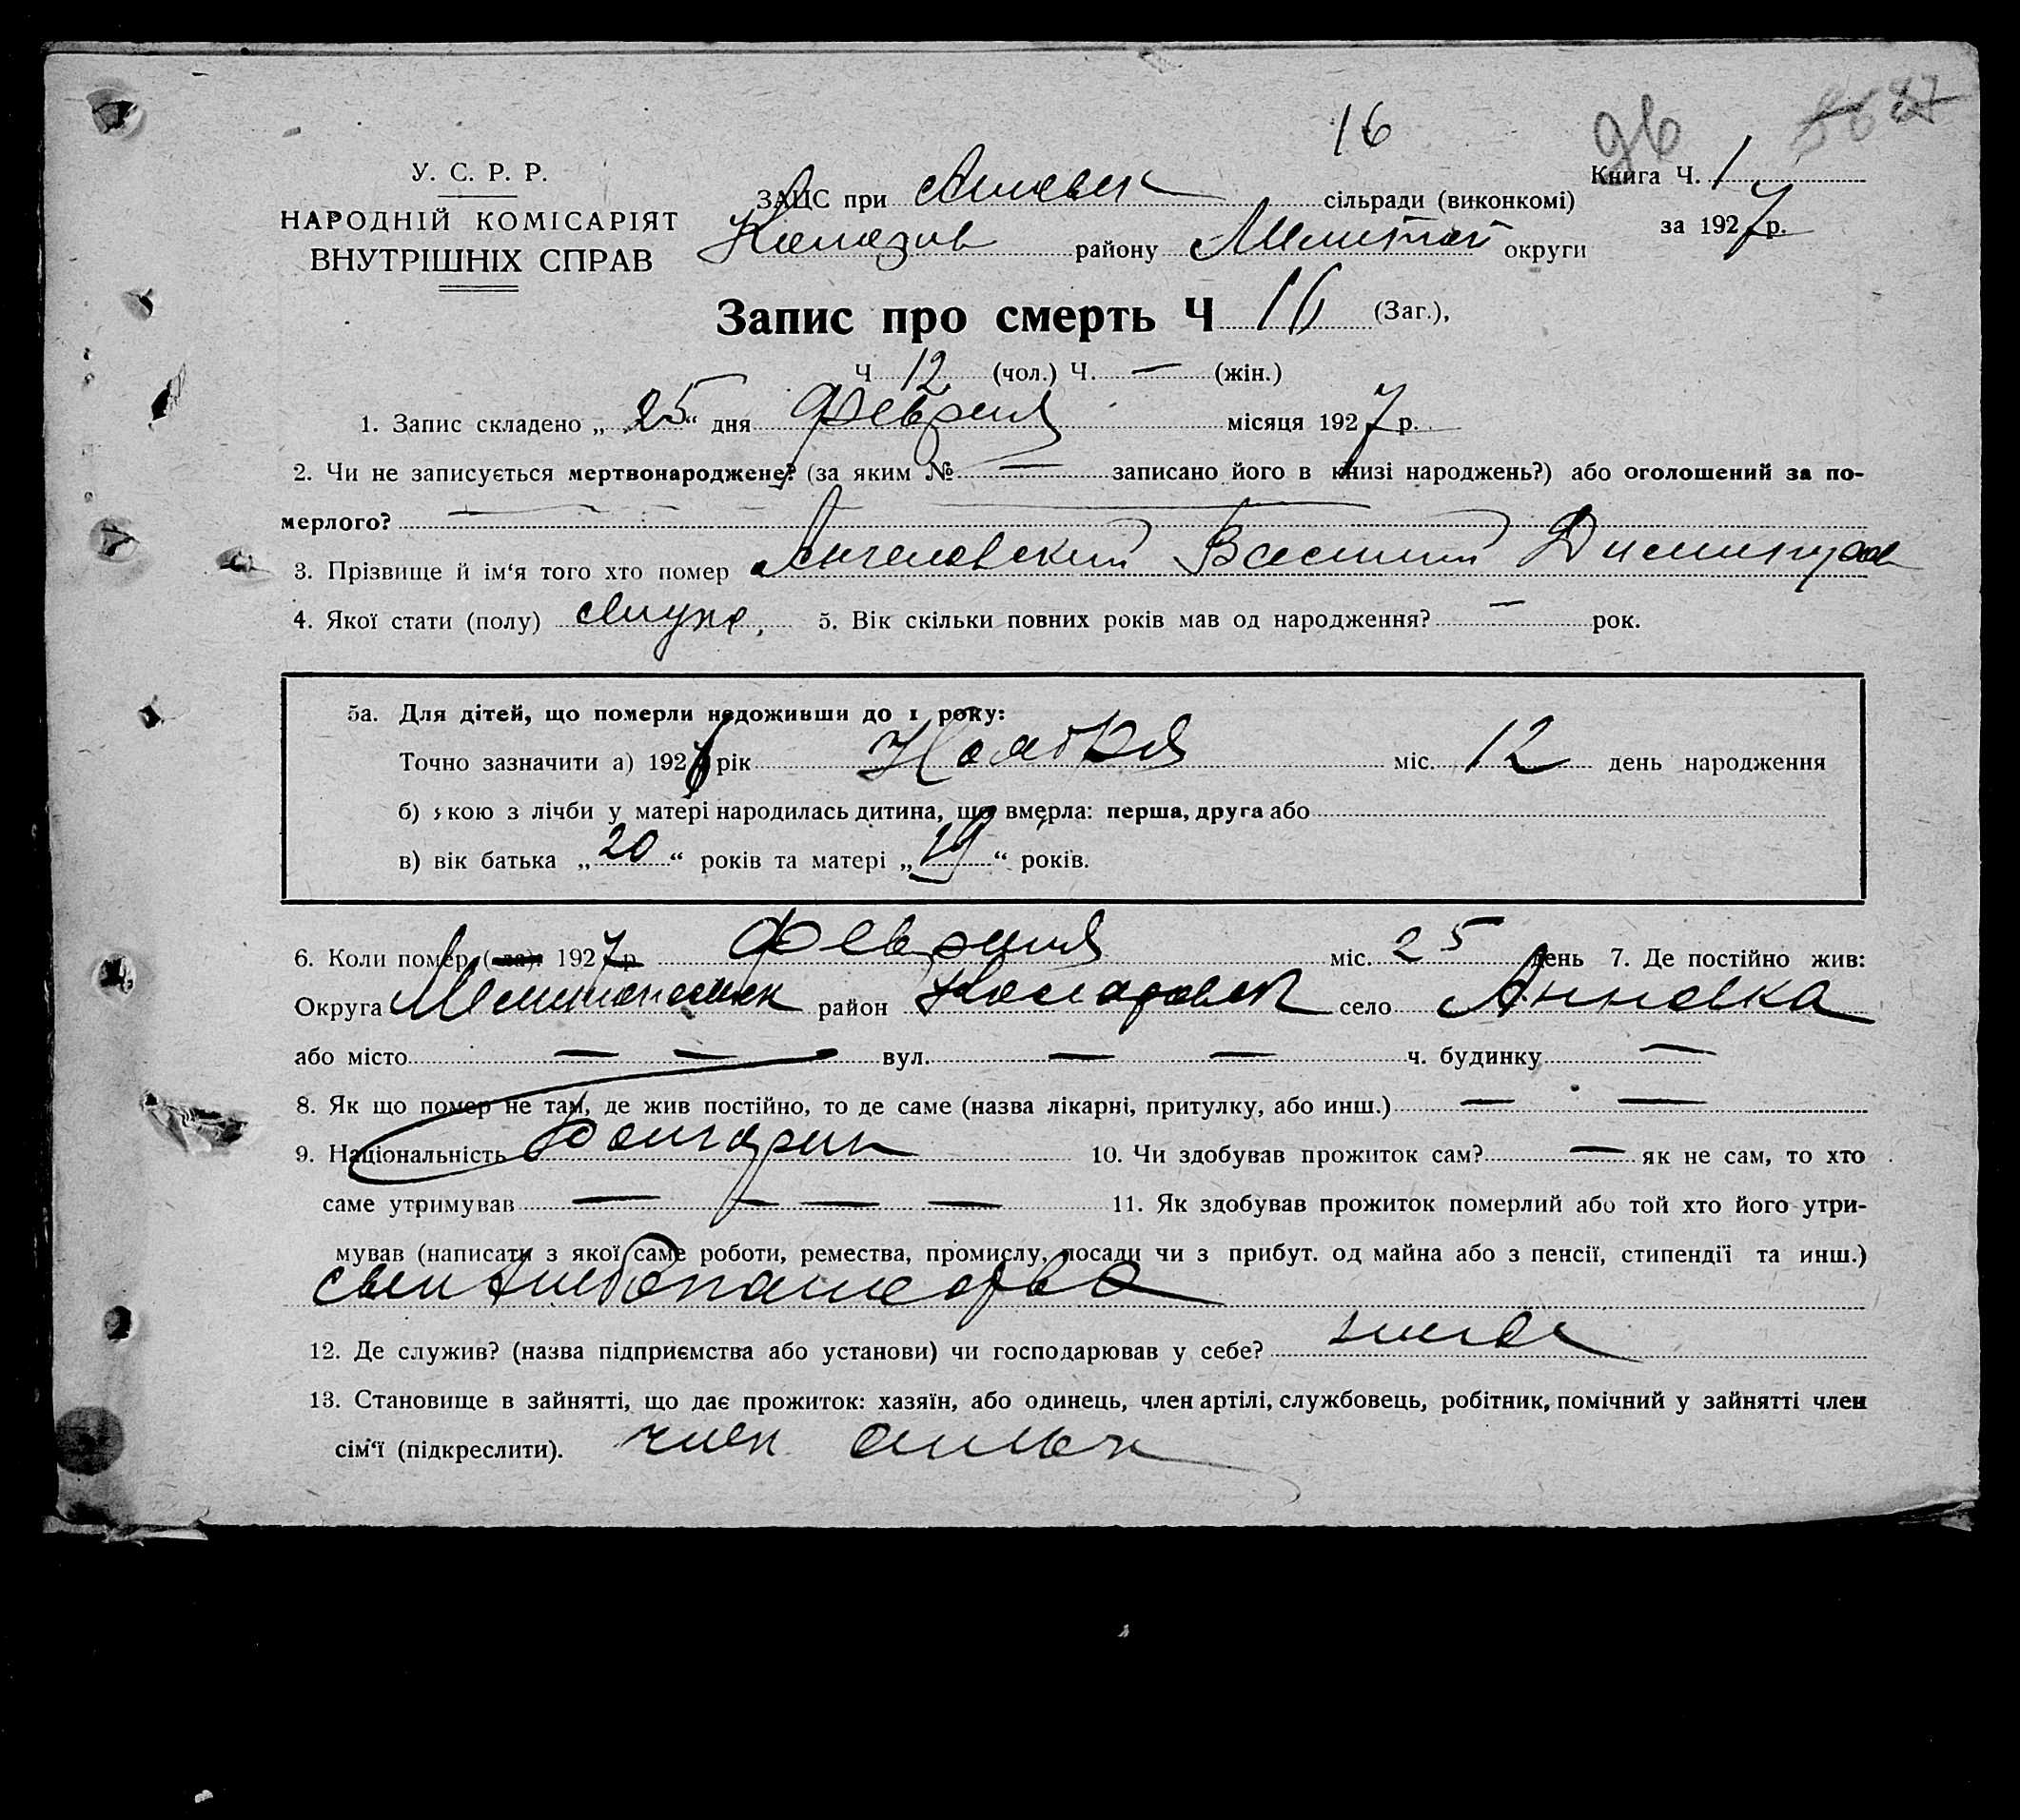 16
96 86 87
У. С. Р. Р.
НАРОДНІЙ КОМІСАРІЯТ
ВНУТРІШНІХ СПРАВ
Книга Ч. 1
за 1927 р.
ЗАЦС при сільради (виконкомі)
району округи
Запис про смерть Ч 16 (Заг.),
Ч 12 (чол.) Ч. — (жін.)
1. Запис складено „ 25 “ дня Февраля місяця 1927 р.
2. Чи не записується мертвонароджене? (за яким № — записано його в книзі народжень?) або оголошений за по-
мерлого? —
3. Прізвище й ім‘я того хто помер Ангеловский Василий Дмитров
4. Якої стати (полу) Муж. 5. Вік скільки повних років мав од народження? — рок.
5а. Для дітей, що померли недоживши до 1 року:
Точно зазначити а) 1926 рік Ноября міс. 12 день народження
б) якою з лічби у матері народилась дитина, що вмерла: перша, друга або
в) вік батька „ 20 “ років та матері „ 19 “ років.
6. Коли помер (-ла): 1927 р. Февраля міс. 25 день 7. Де постійно жив:
Округа Мелитопольск район село Анновка
або місто — — — вул. — — ч. будинку —
8. Як що помер не там, де жив постійно, то де саме (назва лікарні, притулку, або инш.) — —
9. Національність Болгарин 10. Чи здобував прожиток сам? — як не сам, то хто
саме утримував — — — — 11. Як здобував прожиток померлий або той хто його утри-
мував (написати з якої саме роботи, ремества, промислу, посади чи з прибут. од майна або з пенсії, стипендії та инш.)
сын хлебопашества
12. Де служив? (назва підприємства або установи) чи господарював у себе?
13. Становище в зайнятті, що дає прожиток: хазяїн, або одинець, член артілі, службовець, робітник, помічний у зайнятті член
сім‘ї (підкреслити). член семьи